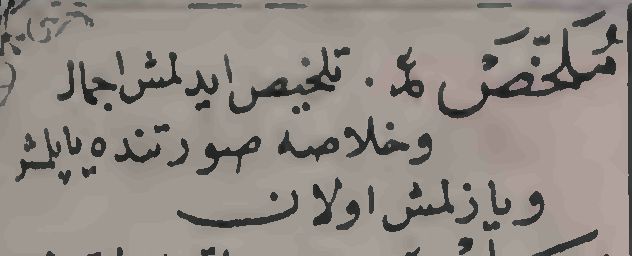 مُلَخَّصْ عـ. تلخيص ايدلمش اجمال
وخلاصه صورتنده ياپلمش
وبازلمش اولان